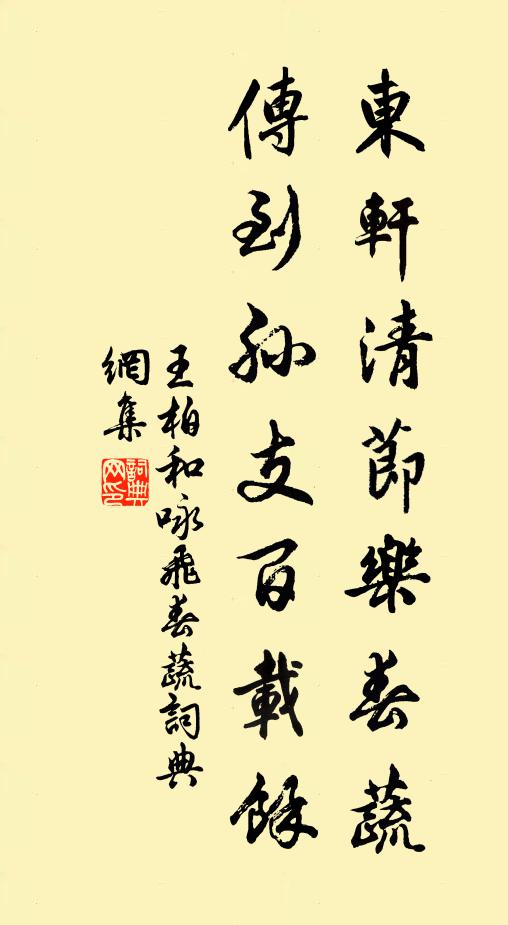 東軒清節樂春蔬
傳到孙支百載餘
王柏和咏飛春蔬詞典
網集
詞典
网印